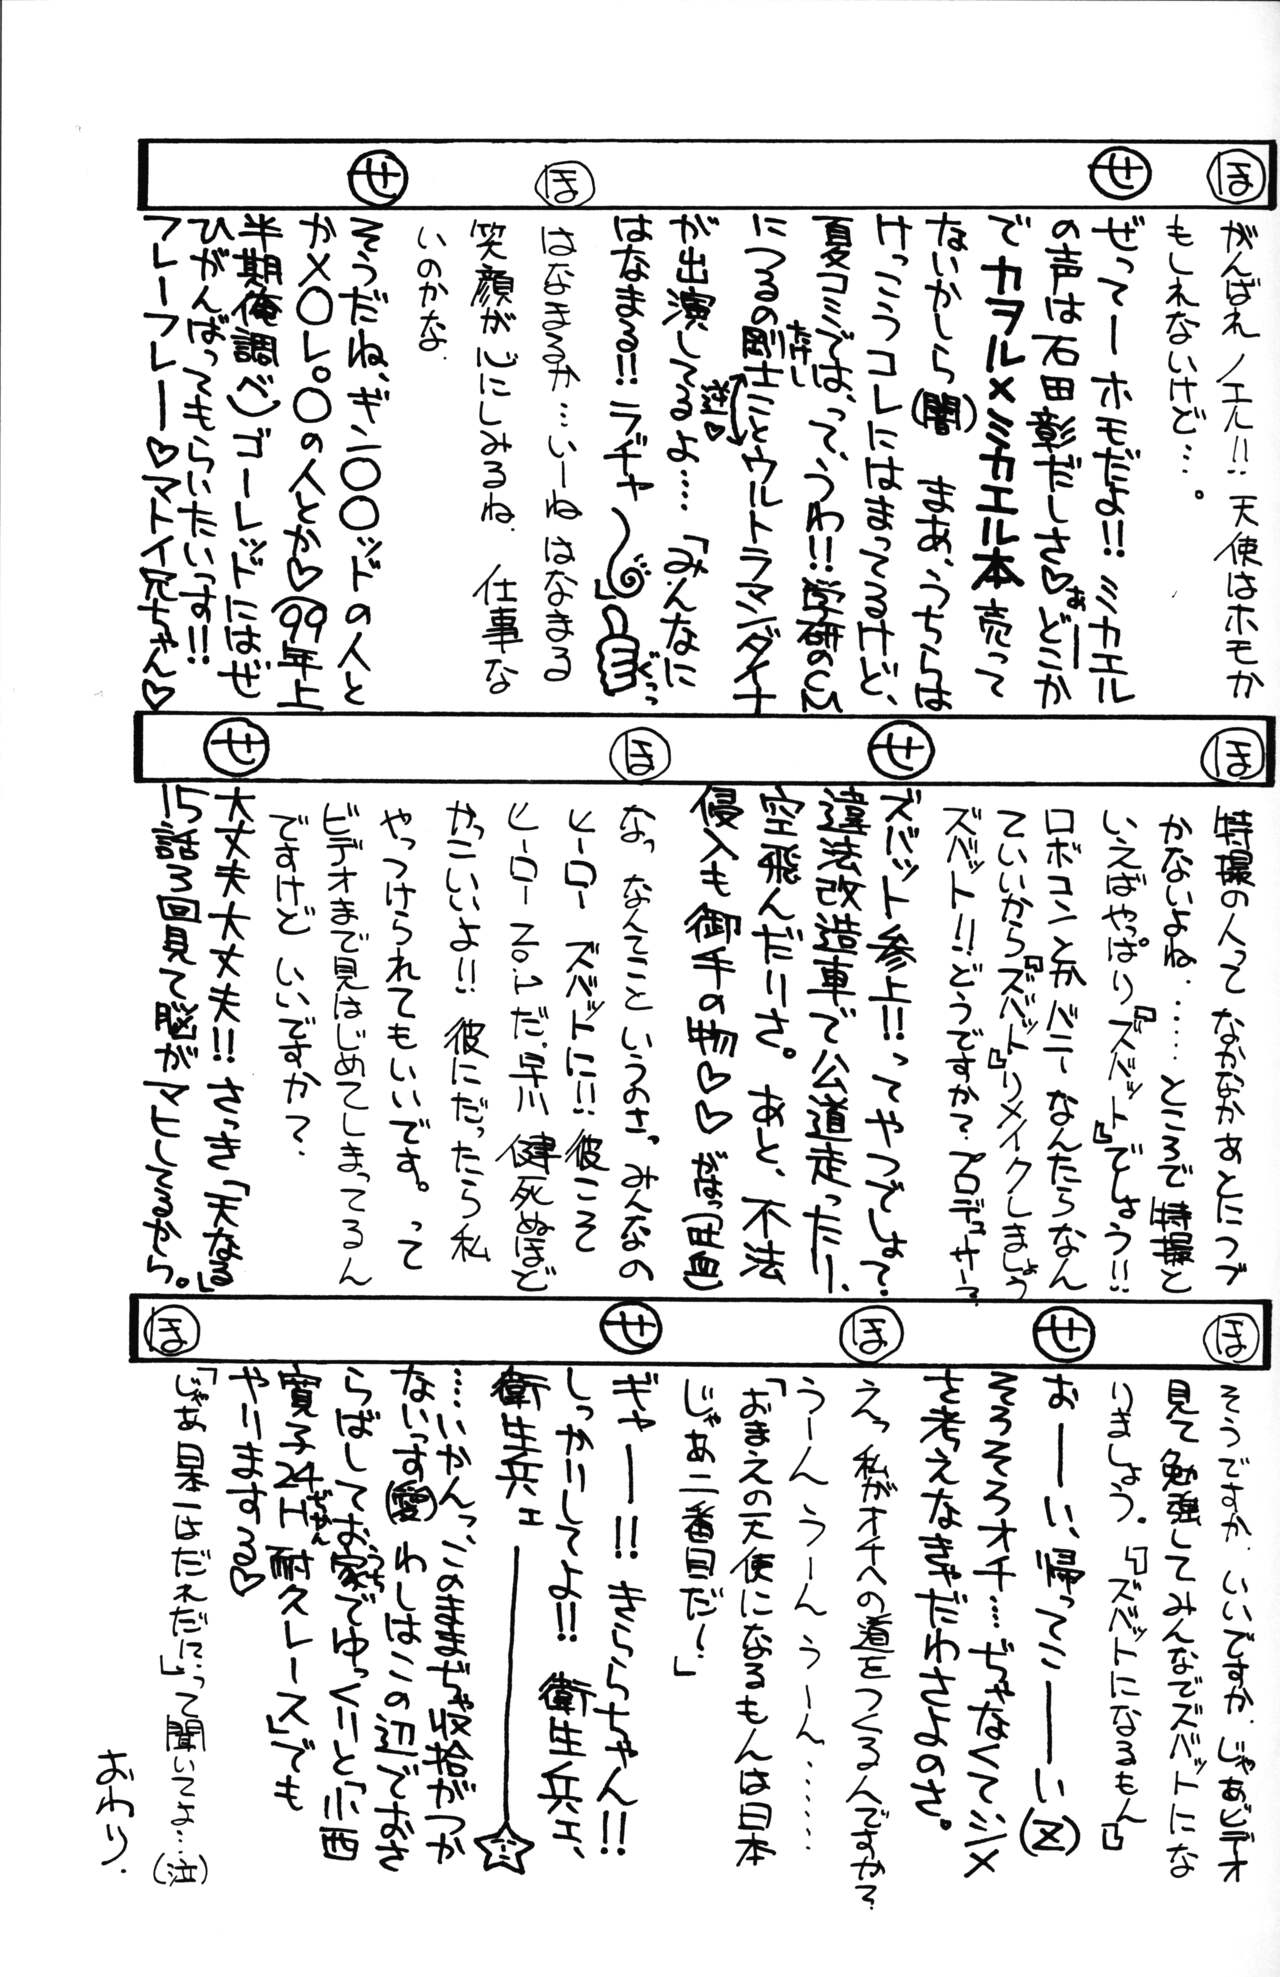 ほ
がんばれ ノエル!! 天使はホモか
もしれないけど…。
せ
ぜってーホモだよ!! ミカエル
の声は石田彰だしさ♡ どこか
でカヲル×ミカエル本売って
ないかしら(闇) まあ、うちらは
けっこうコレにはまってるけど、
夏コミでは、って、うわ!! 学研のCM
につるの剛士ことウルトラマンダイナ
たけし
逆♡
が出演してるよ……「みんなに
はなまる!! ラヂャ
」ぐっっ
ほ
はなまるか…いーね はなまる
笑顔が心にしみるね. 仕事な
いのかな.
せ
そうだね、ギン〇〇ッドの人と
か×〇レ。〇の人とか♡(99年上
半期俺調べ) ゴーレッドにはぜ
ひがんばってもらいたいっす!!
フレーフレー♡マトイ兄ちゃん♡
ほ
特撮の人って なかなかあとにつづ
かないよね……ところで特撮と
いえばやっぱり『ズバット』でしょう!!
ロボコンとかバニーなんたらなん
ていいから『ズバット』リメイクしましょう
ズバット!! どうですか? プロデューサー?
せ
ズバット参上!! ってやつでしょ?
違法改造車で公道走ったり、
空飛んだりさ。あと、不法
侵入も御手の物♡♡ がはっ(吐血)
ほ
なっ なんてこというのさっ みんなの
ヒーロー ズバットに!! 彼こそ
ヒーロー だ. 早川 健死ぬほど
やっこいいよ!! 彼にだったら私
やっつけられてもいいです。って
ビデオまで見はじめてしまってるん
ですけど いいですか?
せ
大丈夫大丈夫!! さっき「天なる」
15話3回見て脳がマヒしてるから。
ほ
そうですか. いいですか. じゃあビデオ
見て勉強してみんなでズバットにな
りましょう。『ズバットになるもん』
せ
おーーい、帰ってこーーい(Z)
そろそろオチ……ぢゃなくてシメ
を考えなきゃだわさよのさ。
ほ
えっ 私がオチへの道をつくるんですか?
うーん うーん うーん……
「おまえの天使になるもんは日本
じゃあ二番目だ!」
せ
ギャー!! きららちゃん!!
しっかりしてよ!! 衛生兵ェ、
衛生兵ェ
…いかんっ、このままぢゃ収拾がつか
ないっす(愛) わしはこの辺でおさ
らばしてお家でゆっくりと「小西
うち
寛子24H耐久レース」でも
ぢゃん
やりまする♡
ほ
「じゃあ日本一はだれだ」って聞いてよ…(泣)
おわり.